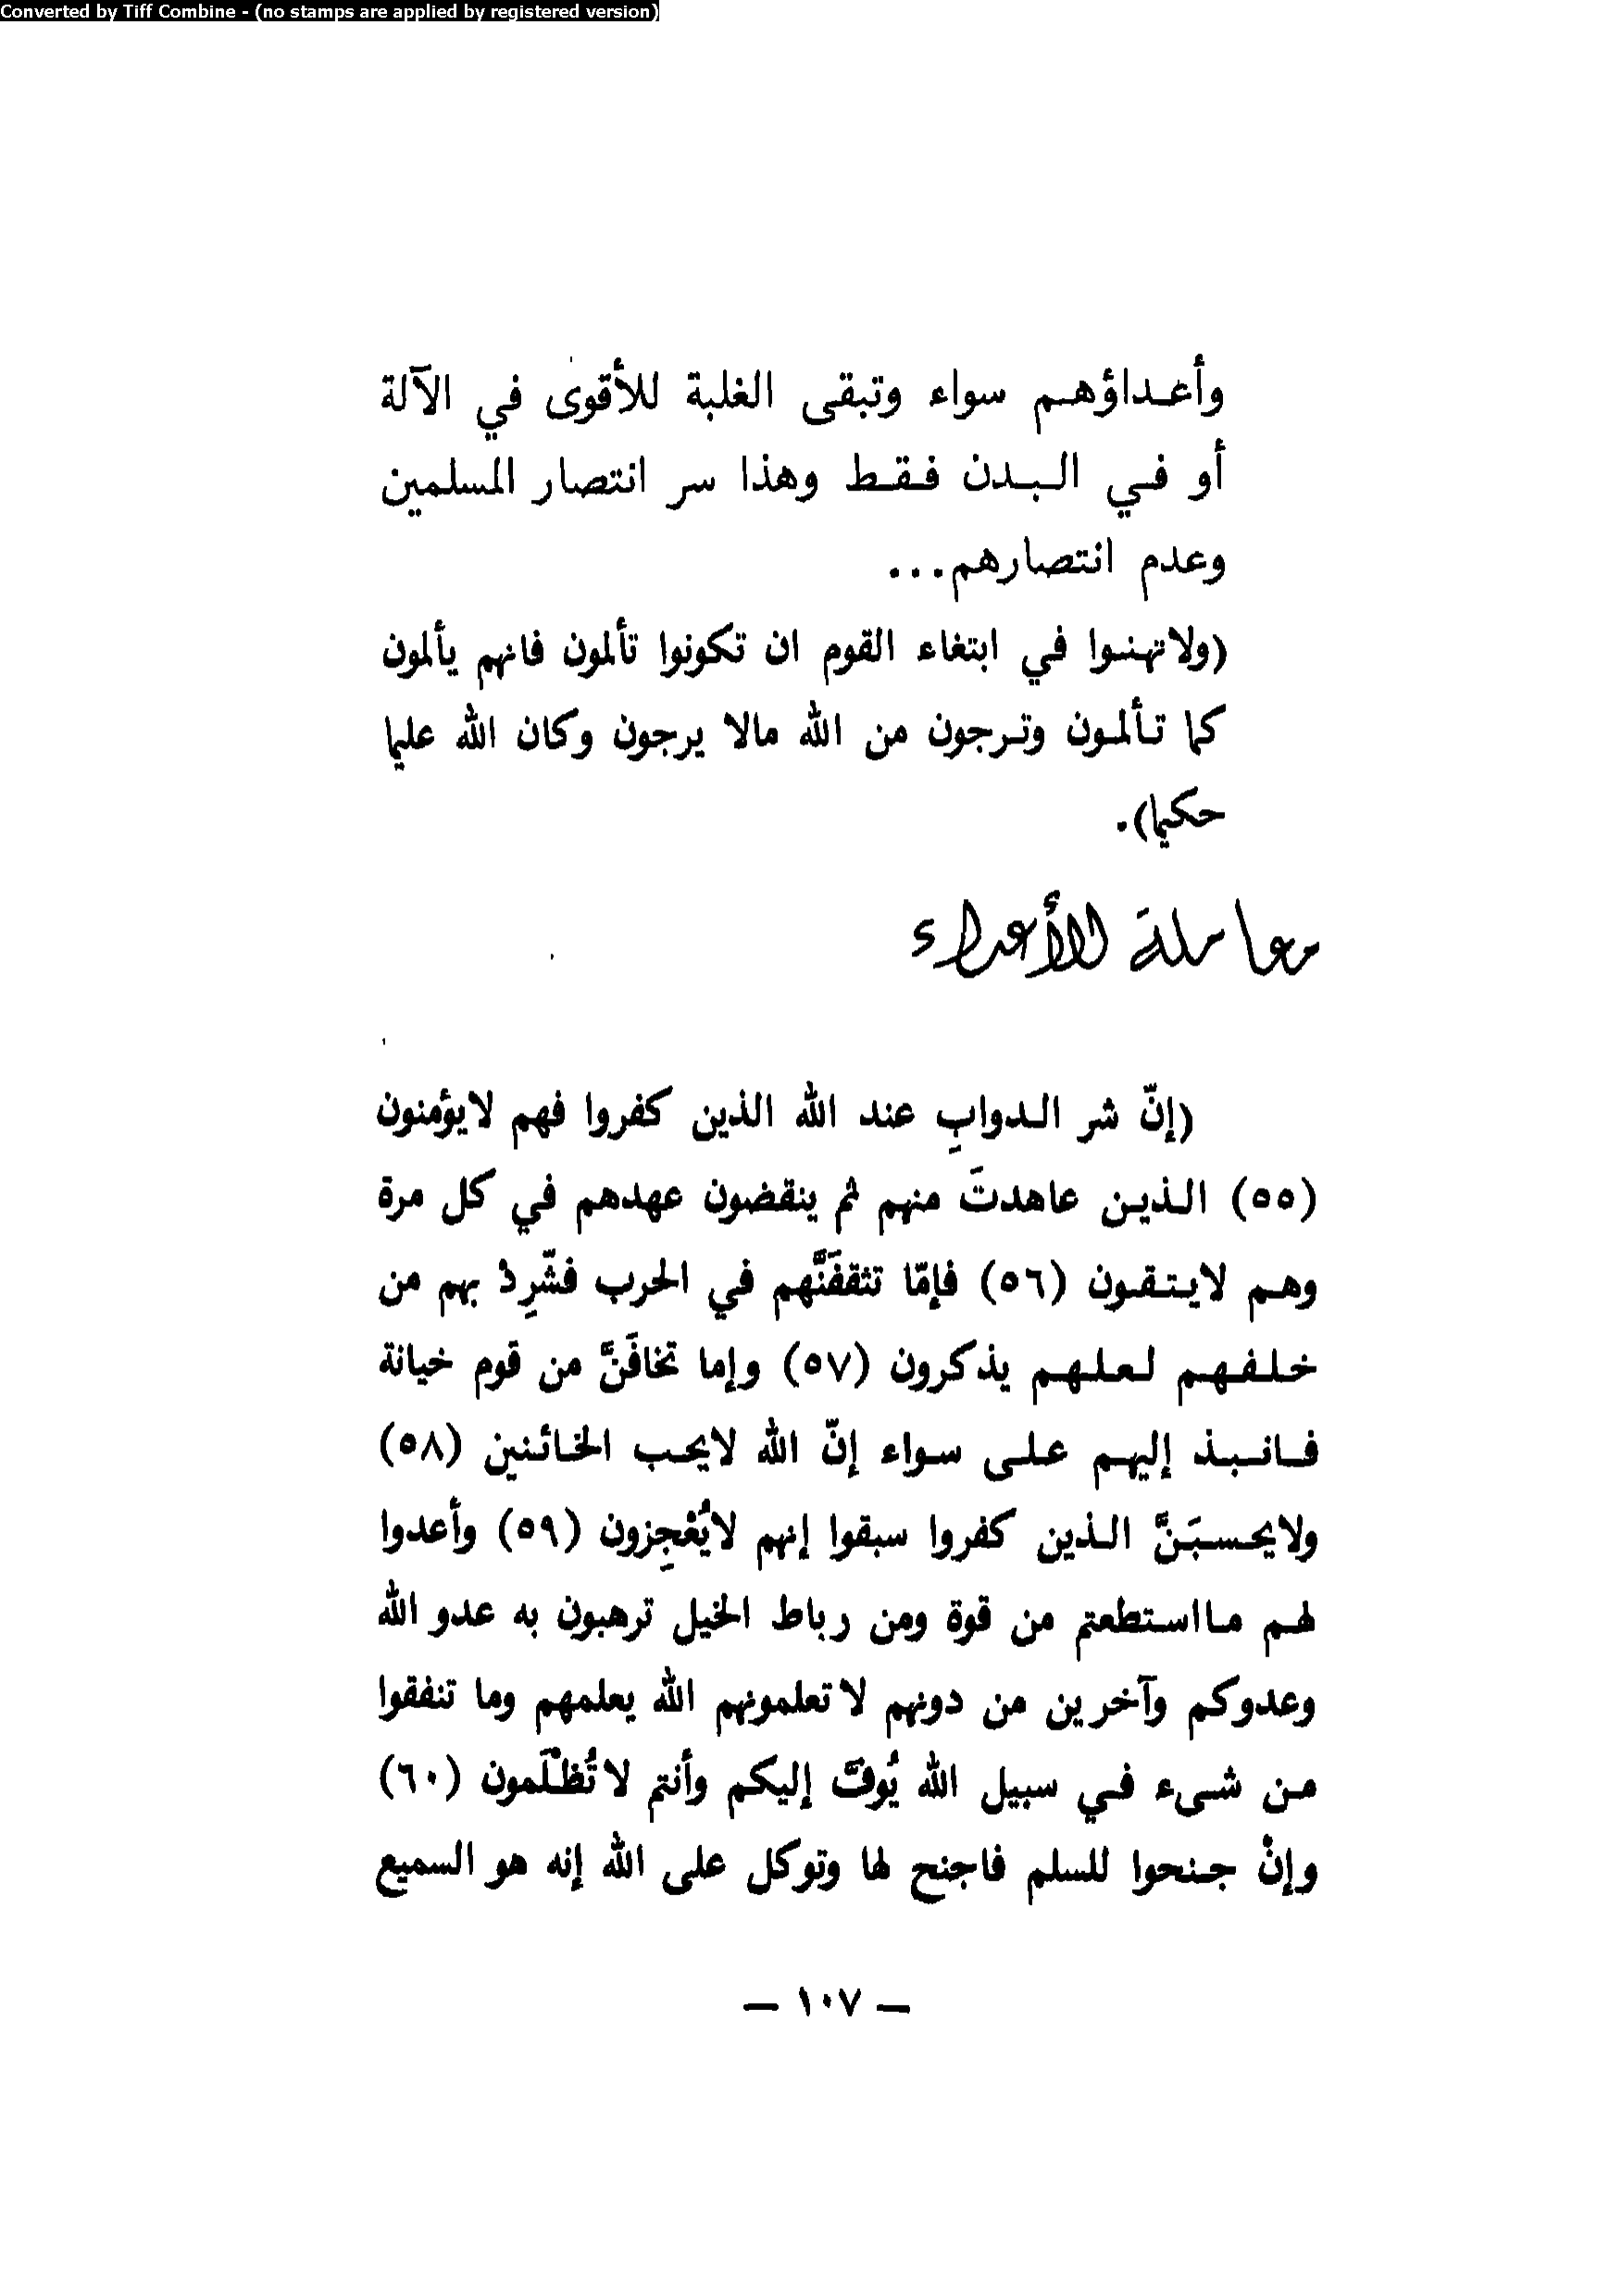 Converted by Tiff Combine - (no stamps are applied by registered version)
وأعداؤهم سواء وتبقى الغلبة للأقوى في الآلة
أو في البدن فقط وهذا سر انتصار المسلمين
وعدم انتصارهم...
(ولاتهنوا في ابتغاء القوم ان تكونوا تألمون فانهم يألمون
كما تألمون وترجون من الله مالا يرجون وكان الله عليما
حكيما).
معاملة الأعداء
(إنّ شر الدوابِ عند الله الذين كفروا فهم لايؤمنون
(٥٥) الذين عاهدتَ منهم ثم ينقضون عهدهم في كل مرة
وهم لايتقون (٥٦) فإمّا تثقفَنَّهم في الحرب فشّرِدْ بهم من
خلفهم لعلهم يذكرون (٥٧) وإما تخافَنَّ من قوم خيانة
فانبذ إليهم على سواء إنّ الله لايحب الخائنين (٥٨)
ولايحسبَنَّ الذين كفروا سبقوا إنهم لايُعْجِزون (٥٩) وأعدوا
لهم مااستطعتم من قوة ومن رباط الخيل ترهبون به عدو الله
وعدوكم وآخرين من دونهم لاتعلمونهم الله يعلمهم وما تنفقوا
من شىء في سبيل الله يُوفَّ إليكم وأنتم لاتُظْلَمون (٦٠)
وإنْ جنحوا للسلم فاجنح لها وتوكل على الله إنه هو السميع
— ١٠٧ —